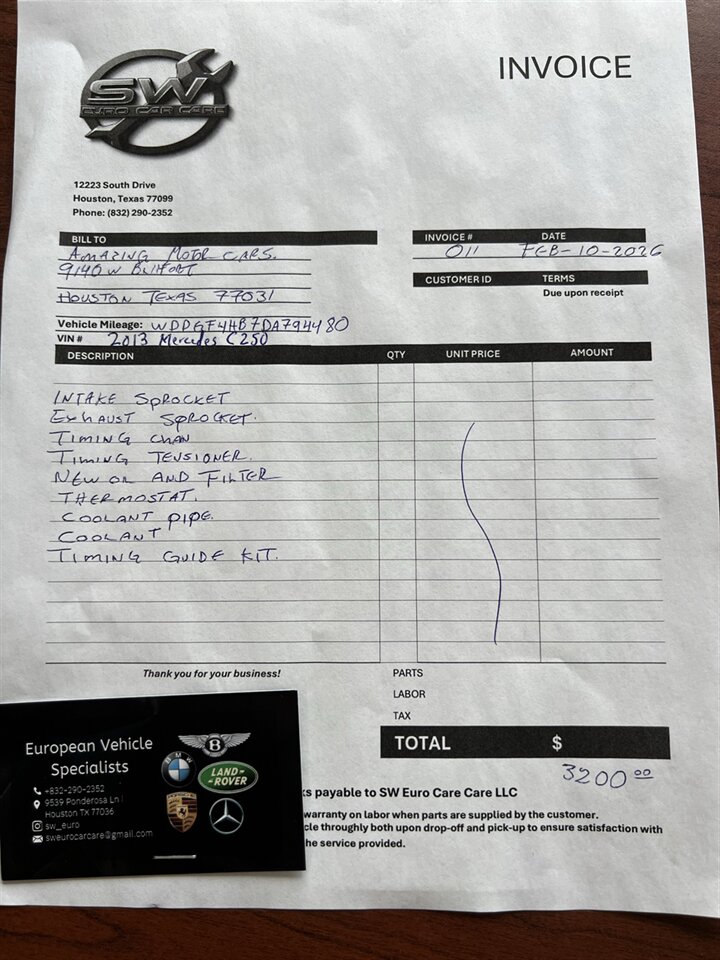 SW
EURO CAR CARE
INVOICE
12223 South Drive
Houston, Texas 77099
Phone: (832) 290-2352
BILL TO
AMAZING MOTOR CARS.
9140 W BELLFORT
HOUSTON TEXAS 77031
INVOICE # DATE
011 FEB-10-2026
CUSTOMER ID TERMS
Due upon receipt
Vehicle Mileage: WDDGF4HB7DA794480
VIN # 2013 Mercedes C250
DESCRIPTION QTY UNIT PRICE AMOUNT
INTAKE SPROCKET
EXHAUST SPROCKET.
TIMING CHAN
TIMING TENSIONER.
NEW OIL AND FILTER
THERMOSTAT.
COOLANT PIPE.
COOLANT
TIMING GUIDE KIT.
Thank you for your business!
PARTS
LABOR
TAX
TOTAL $
3200 00
ks payable to SW Euro Care Care LLC
warranty on labor when parts are supplied by the customer.
cle throughly both upon drop-off and pick-up to ensure satisfaction with
he service provided.
European Vehicle
Specialists
+832-290-2352
9539 Ponderosa Ln
Houston Tx 77036
sw_euro
sweurocarcare@gmail.com
B
BMW
LAND-
ROVER
PORSCHE